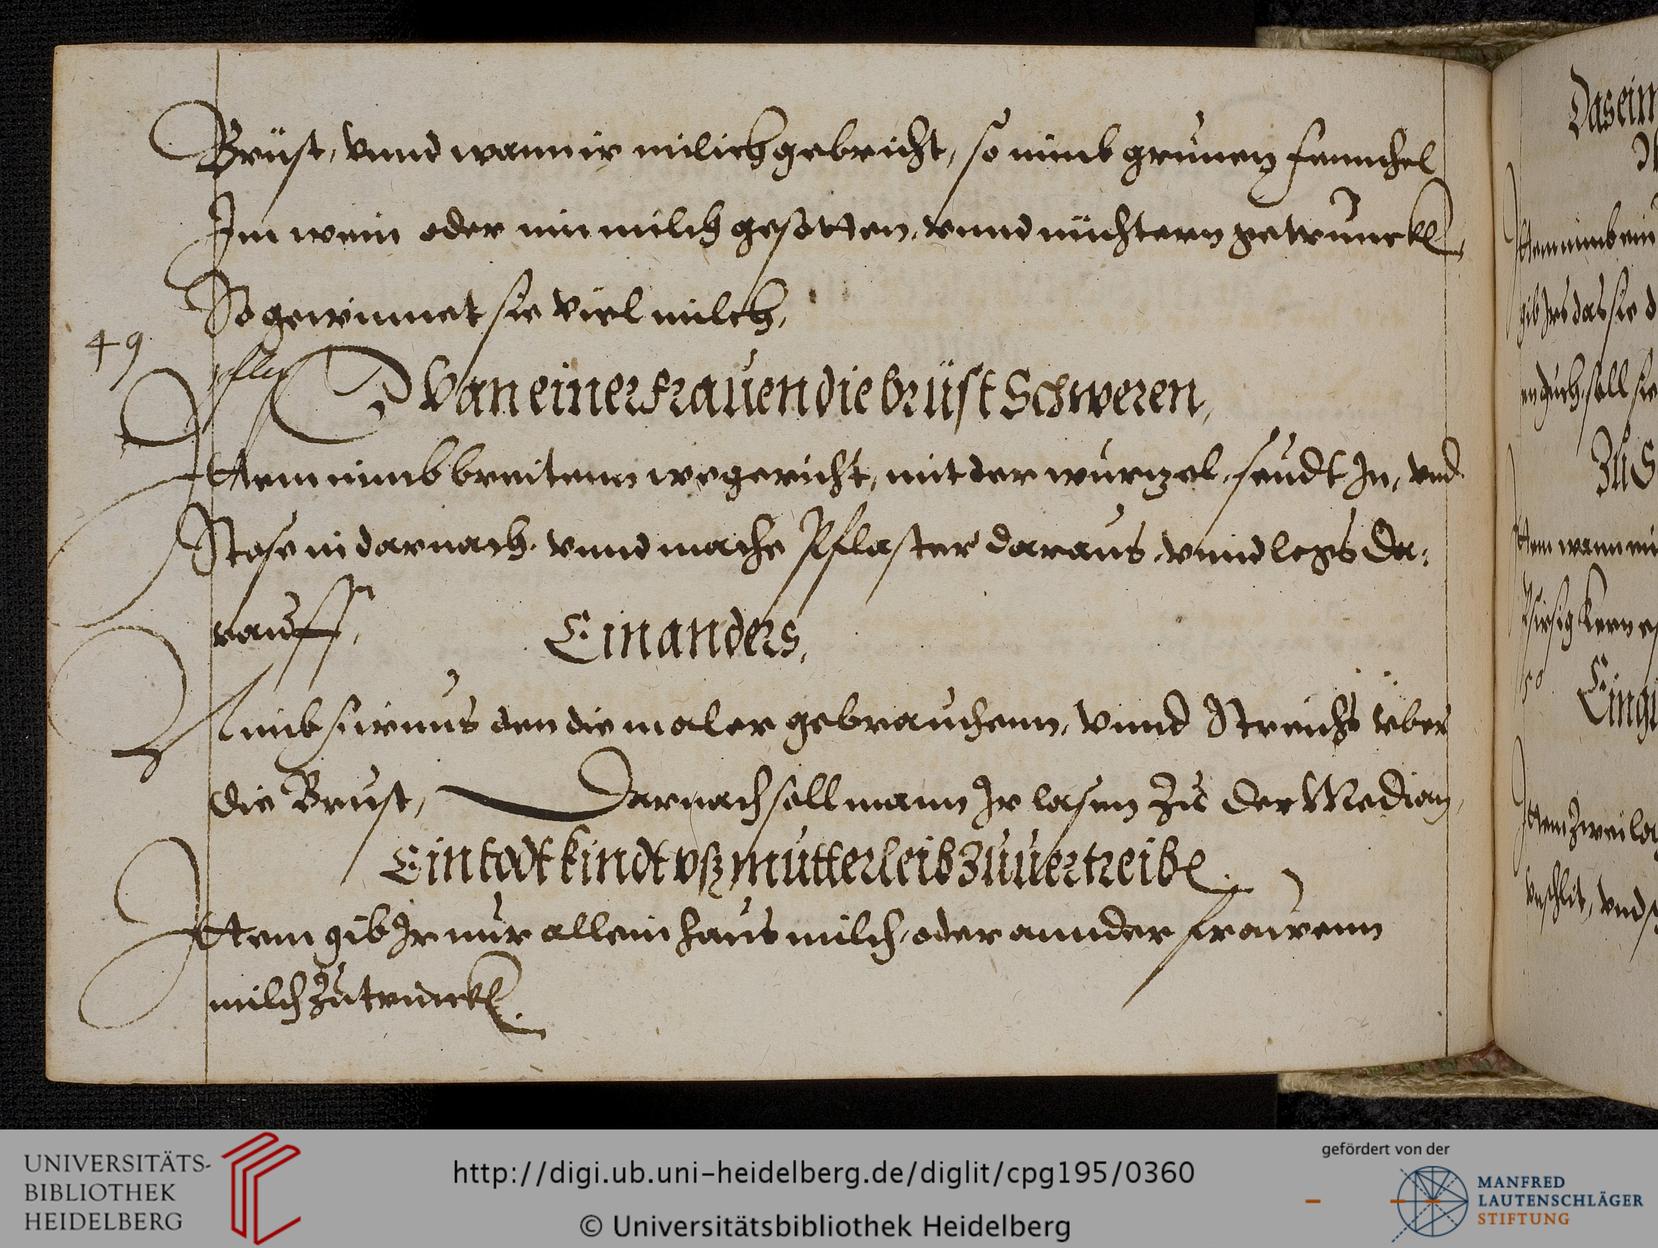 Brüst, vnnd wann ir milich gebricht, so nimb grunen fennchel
Im wein oder inn milch gesotten, vnnd nüchtern getruncken,
So gewinnet sie viel milch,
49
Wan einer frauen die brüst Schweren,
Ittem nimb breitenn wegericht, mit der wurzel, seudt In, vnd
Stose in darnach, vnnd mache Pflaster daraus vnnd legs da:
rauff,
Ein anders,
Nimb firnus den die maler gebrauchenn, vnnd Streichs über
die Brust, Darnach soll mann Ir lasen zu der Median,
Ein todt kindt vß mutter leib zuuertreiben.
Ittem gib Ir nur allein haus milch, oder annder frauwenn
milch zu trincken.
Das ein
Ittem nimb ein
gib Irs das sie d
soll sie
Zu S
Ittem wann ein
Pfirsig Kern
50
Ittem zwei
vnschlit, vnd
UNIVERSITÄTS-
BIBLIOTHEK
HEIDELBERG
http://digi.ub.uni-heidelberg.de/diglit/cpg195/0360
© Universitätsbibliothek Heidelberg
gefördert von der
MANFRED
LAUTENSCHLÄGER
STIFTUNG